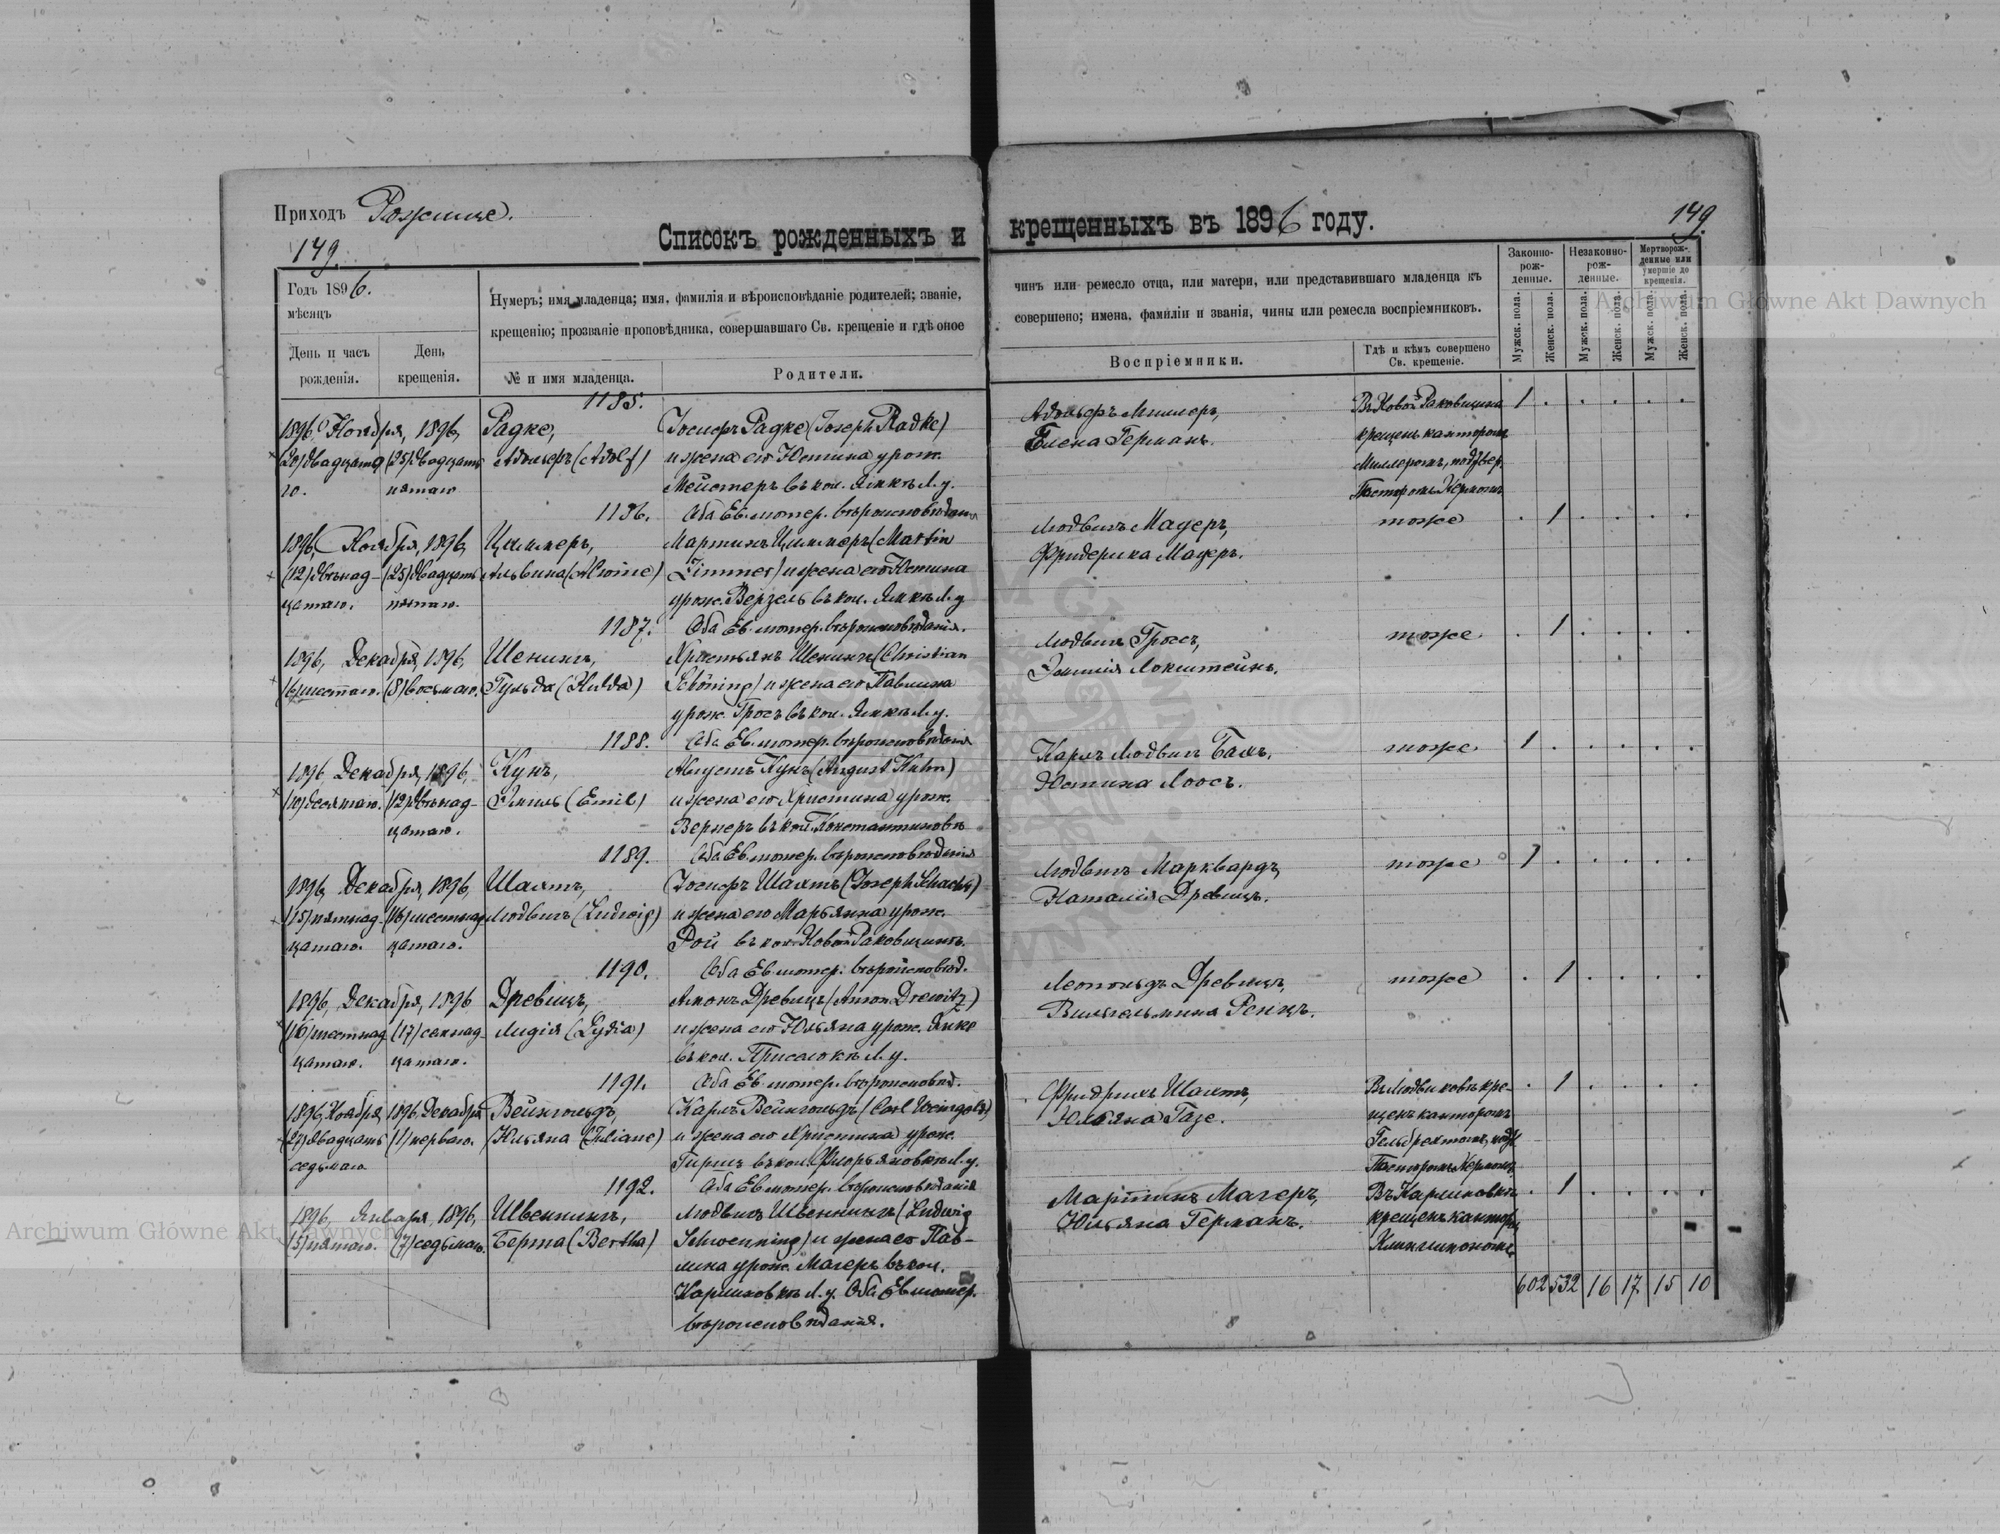 Приходъ Рожище.
149.
Списокъ рожденныхъ и крещенныхъ въ 1896 году.
149.
Годъ 1896.
мѣсяцъ
День и часъ рожденія.
День крещенія.
Нумеръ; имя младенца; имя, фамилія и вѣроисповѣданіе родителей; званіе,
крещенію; прозваніе проповѣдника, совершавшаго Св. крещеніе и гдѣ оное
№ и имя младенца.
Родители.
чинъ или ремесло отца, или матери, или представившаго младенца къ
совершено; имена, фамиліи и званія, чины или ремесла воспріемниковъ.
Воспріемники.
Гдѣ и кѣмъ совершено Св. крещеніе.
Законно-рож-денные.
Незаконно-рож-денные.
Мертворож-денные или умершіе до крещенія.
Мужск. пола.
Женск. пола.
Мужск. пола.
Женск. пола.
Мужск. пола.
Женск. пола.
1185.
1896, Ноября, 1896,
(20) двадцата-
го.
(25) двадцать
пятаго
Радке,
Адольфъ (Adolf)
Іосифъ Радке (Joseph Radke)
и жена его Юстина урож.
Мейстеръ въ кол. Ямки Л. у.
Оба Ев. лютер. вѣроисповѣданія
Адольфъ Миллеръ,
Елена Германъ.
Въ Новой Раковщинѣ
крещенъ канторомъ
Миллеромъ, подтвер.
Пасторомъ Керномъ
1
1186.
1896, Ноября, 1896,
(12) двѣнад-
цатаго.
(25) двадцать
пятаго.
Циммеръ,
Альвина (Alwine)
Мартинъ Циммеръ (Martin
Zimmer) и жена его Юстина
урож. Верзель въ кол. Ямки Л. у
Оба Ев. лютер. вѣроисповѣданія.
Людвигъ Мадеръ,
Фридерика Мадеръ.
тоже
1
1187.
1896, Декабря, 1896,
(6) шестаго. (8) восьмаго.
Шенингъ,
Гульда (Hulda)
Христьянъ Шенингъ (Christian
Schöning) и жена его Павлина
урож. Гросъ въ кол. Ямки Л. у.
Оба Ев. лютер. вѣроисповѣданія
Людвигъ Гроссъ,
Эмилія Локштейнъ.
тоже
1
1188.
1896 Декабря, 1896,
(10) десятаго. (12) двѣнад-
цатаго.
Кунъ,
Эмиль (Emil)
Августъ Кунъ (August Kuhn)
и жена его Христина урож.
Вернеръ въ кол. Константиновкѣ
Оба Ев. лютер. вѣроисповѣданія
Карлъ Людвигъ Бамъ,
Юстина Лоосъ.
тоже
1
1189.
1896, Декабря, 1896,
(15) пятнад-
цатаго.
(16) шестнад-
цатаго.
Шахтъ,
Людвигъ (Ludwig)
Іосифъ Шахтъ (Joseph Schacht)
и жена его Марьянна урож.
Рой въ кол. Новой Раковщинѣ.
Оба Ев. лютер. вѣроисповѣд.
Людвигъ Марквардъ,
Наталія Древицъ.
тоже
1
1190.
1896, Декабря, 1896
(16) шестнад-
цатаго.
(17) семнад-
цатаго.
Древицъ,
Лидія (Lydia)
Антонъ Древицъ (Anton Drewitz)
и жена его Юльяна урож. Янке
въ кол. Присоловкѣ Л. у.
Оба Ев. лютер. вѣроисповѣд.
Леопольдъ Древицъ,
Вильгельмина Ренцъ.
тоже
1
1191.
1896, Ноября, 1896, Декабря
(27) двадцать
седьмаго
(1) перваго.
Вейнгольдъ,
Юльяна (Juliane)
Карлъ Вейнгольдъ (Carl Weingold)
и жена его Христина урож.
Гиршъ въ кол. Флорьяновкѣ Л. у.
Оба Ев. лютер. вѣроисповѣданія
Фридрихъ Шахтъ,
Юльяна Газе.
Въ Людвиковкѣ кре-
щенъ канторомъ
Гельбрехтомъ, подтв.
Пасторомъ Керномъ
1
1192.
1896, Января, 1896,
(5) пятаго. (7) седьмаго.
Швеннингъ,
Берта (Bertha)
Людвигъ Швеннингъ (Ludwig
Schwenning) и жена его Пав-
лина урож. Магеръ въ кол.
Карлиновкѣ Л. у. Оба Ев. лютер.
вѣроисповѣданія.
Мартинъ Магеръ,
Юльяна Германъ.
Въ Карлиновкѣ
крещенъ канторомъ
1
602 532 16 17 15 10
Archiwum Główne Akt Dawnych
Archiwum Główne Akt Dawnych